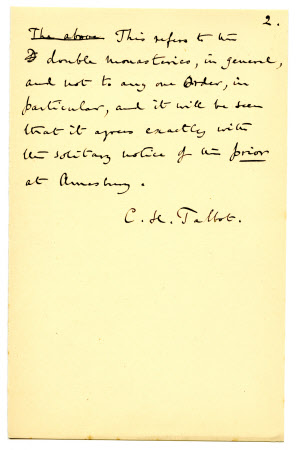 2.
The above This refers to the
D double monasteries, in general,
and not to any one Order, in
particular, and it will be seen
that it agrees exactly with
the solitary notice of the prior
at Amesbury.
C. H. Talbot.